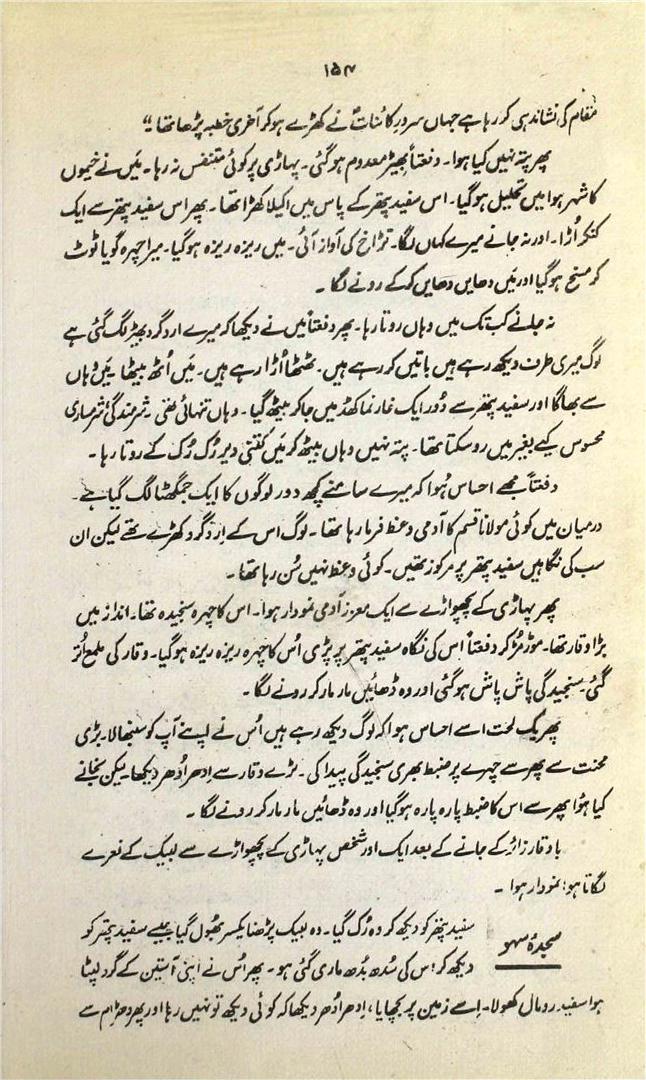 ۱۵۴
مقام کی نشاندہی کر رہا ہے جہاں سرورِ کائناتؐ نے کھڑے ہو کر آخری خطبہ پڑھا تھا۔"
پھر پتہ نہیں کیا ہوا۔ دفعتاً بھیڑ معدوم ہو گئی۔ پہاڑی پر کوئی متنفس نہ رہا۔ مَیں نے خیموں
کا شہر ہوا میں تحلیل ہو گیا۔ اس سفید پتھر کے پاس میں اکیلا کھڑا تھا۔ پھر اس سفید پتھر سے ایک
کنکر اُڑا۔ اور نہ جانے میرے کہاں لگا۔ تڑاخ کی آواز آئی۔ میں ریزہ ریزہ ہو گیا۔ میرا چہرہ گویا ٹوٹ
کر مسخ ہو گیا اور مَیں دھایں دھایں کر کے رونے لگا۔
نہ جانے کب تک میں وہاں روتا رہا۔ پھر دفعتاً میں نے دیکھا کہ میرے اردگرد بھیڑ لگ گئی ہے
لوگ میری طرف دیکھ رہے ہیں باتیں کر رہے ہیں۔ ٹھٹھا اُڑا رہے ہیں۔ مَیں اُٹھ بیٹھا مَیں وہاں
سے بھاگا اور سفید پتھر سے دُور ایک غار نما کھڈ میں جا کر بیٹھ گیا۔ وہاں تنہائی تھی۔ شرمندگیٔ شرمساری
محسوس کیے بغیر میں رو سکتا تھا۔ پتہ نہیں وہاں بیٹھ کر مَیں کتنی دیر رُک رُک کے روتا رہا۔
دفعتاً مجھے احساس ہُوا کہ میرے سامنے کچھ دور لوگوں کا ایک جمگھٹا لگ گیا ہے۔
درمیان میں کوئی مولانا قسم کا آدمی وعظ فرما رہا تھا۔ لوگ اس کے اردگرد کھڑے تھے لیکن ان
سب کی نگاہیں سفید پتھر پر مرکوز تھیں۔ کوئی وعظ نہیں سُن رہا تھا۔
پھر پہاڑی کے پچھواڑے سے ایک معزز آدمی نمودار ہوا۔ اس کا چہرہ سنجیدہ تھا۔ انداز میں
بڑا وقار تھا۔ موڑ مُڑ کر دفعتاً اس کی نگاہ سفید پتھر پر پڑی اُس کا چہرہ ریزہ ریزہ ہو گیا۔ وقار کی ملمع اُتر
گئی۔ سنجیدگی پاش پاش ہو گئی اور وہ ڈھائیں مار مار کر رونے لگا۔
پھر یک لخت اسے احساس ہوا کہ لوگ دیکھ رہے ہیں اُس نے اپنے آپ کو سنبھالا۔ بڑی
محنت سے پھر سے چہرے پر ضبط بھری سنجیدگی پیدا کی۔ بڑے وقار سے اِدھر اُدھر دیکھا۔ لیکن نجانے
کیا ہُوا پھر سے اس کا ضبط پارہ پارہ ہو گیا اور وہ ڈھائیں مار مار کر رونے لگا۔
باوقار زائر کے جانے کے بعد ایک اور شخص پہاڑی کے پچھواڑے سے لبیک کے نعرے
لگاتا ہوا نمودار ہوا۔
سجدۂ سہو
سفید پتھر کو دیکھ کر وہ رُک گیا۔ وہ لبیک پڑھنا یکسر بھُول گیا جیسے سفید پتھر کو
دیکھ کر اس کی سُدھ بُدھ ماری گئی ہو۔ پھر اُس نے اپنی آستین کے گرد لپٹا
ہوا سفید رومال کھولا۔ اِسے زمین پر بچھایا، اِدھر اُدھر دیکھا کہ کوئی دیکھ تو نہیں رہا اور پھر دھڑام سے